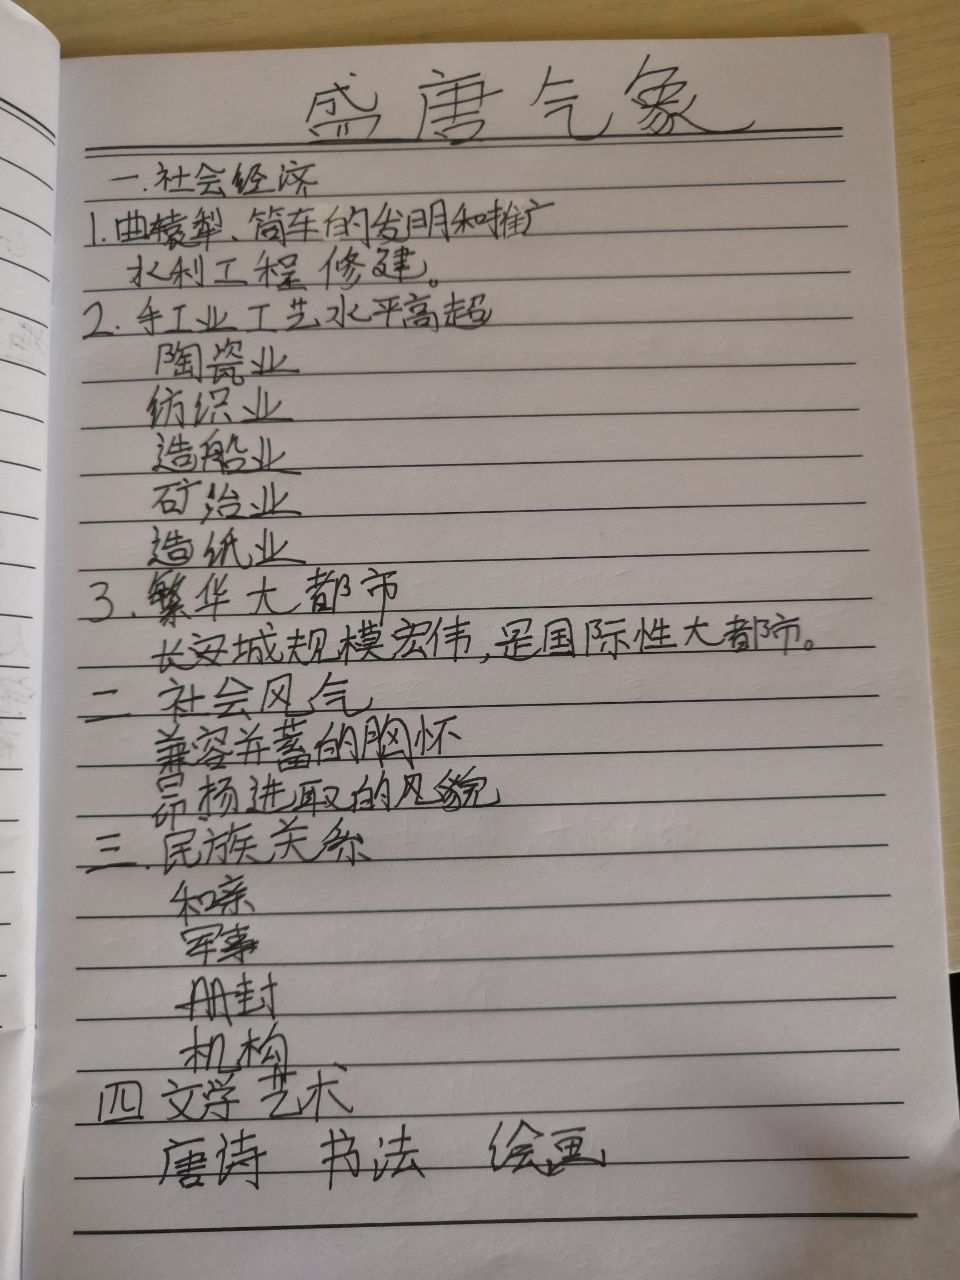 盛唐气象
一.社会经济
1.曲辕犁、筒车的发明和推广
水利工程 修建。
2.手工业工艺水平高超
陶瓷业
纺织业
造船业
矿冶业
造纸业
3.繁华大都市
长安城规模宏伟,是国际性大都市。
二 社会风气
兼容并蓄的胸怀
昂扬进取的风貌
三.民族关系
和亲
军事
册封
机构
四 文学艺术
唐诗 书法 绘画